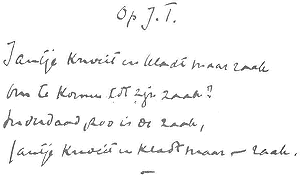 Op J.T.
Jantje knoeit en kladt maar raak
om te komen tot zijn zaak?
Inderdaad, zoo is de zaak,
Jantje knoeit en kladt maar – raak.
–